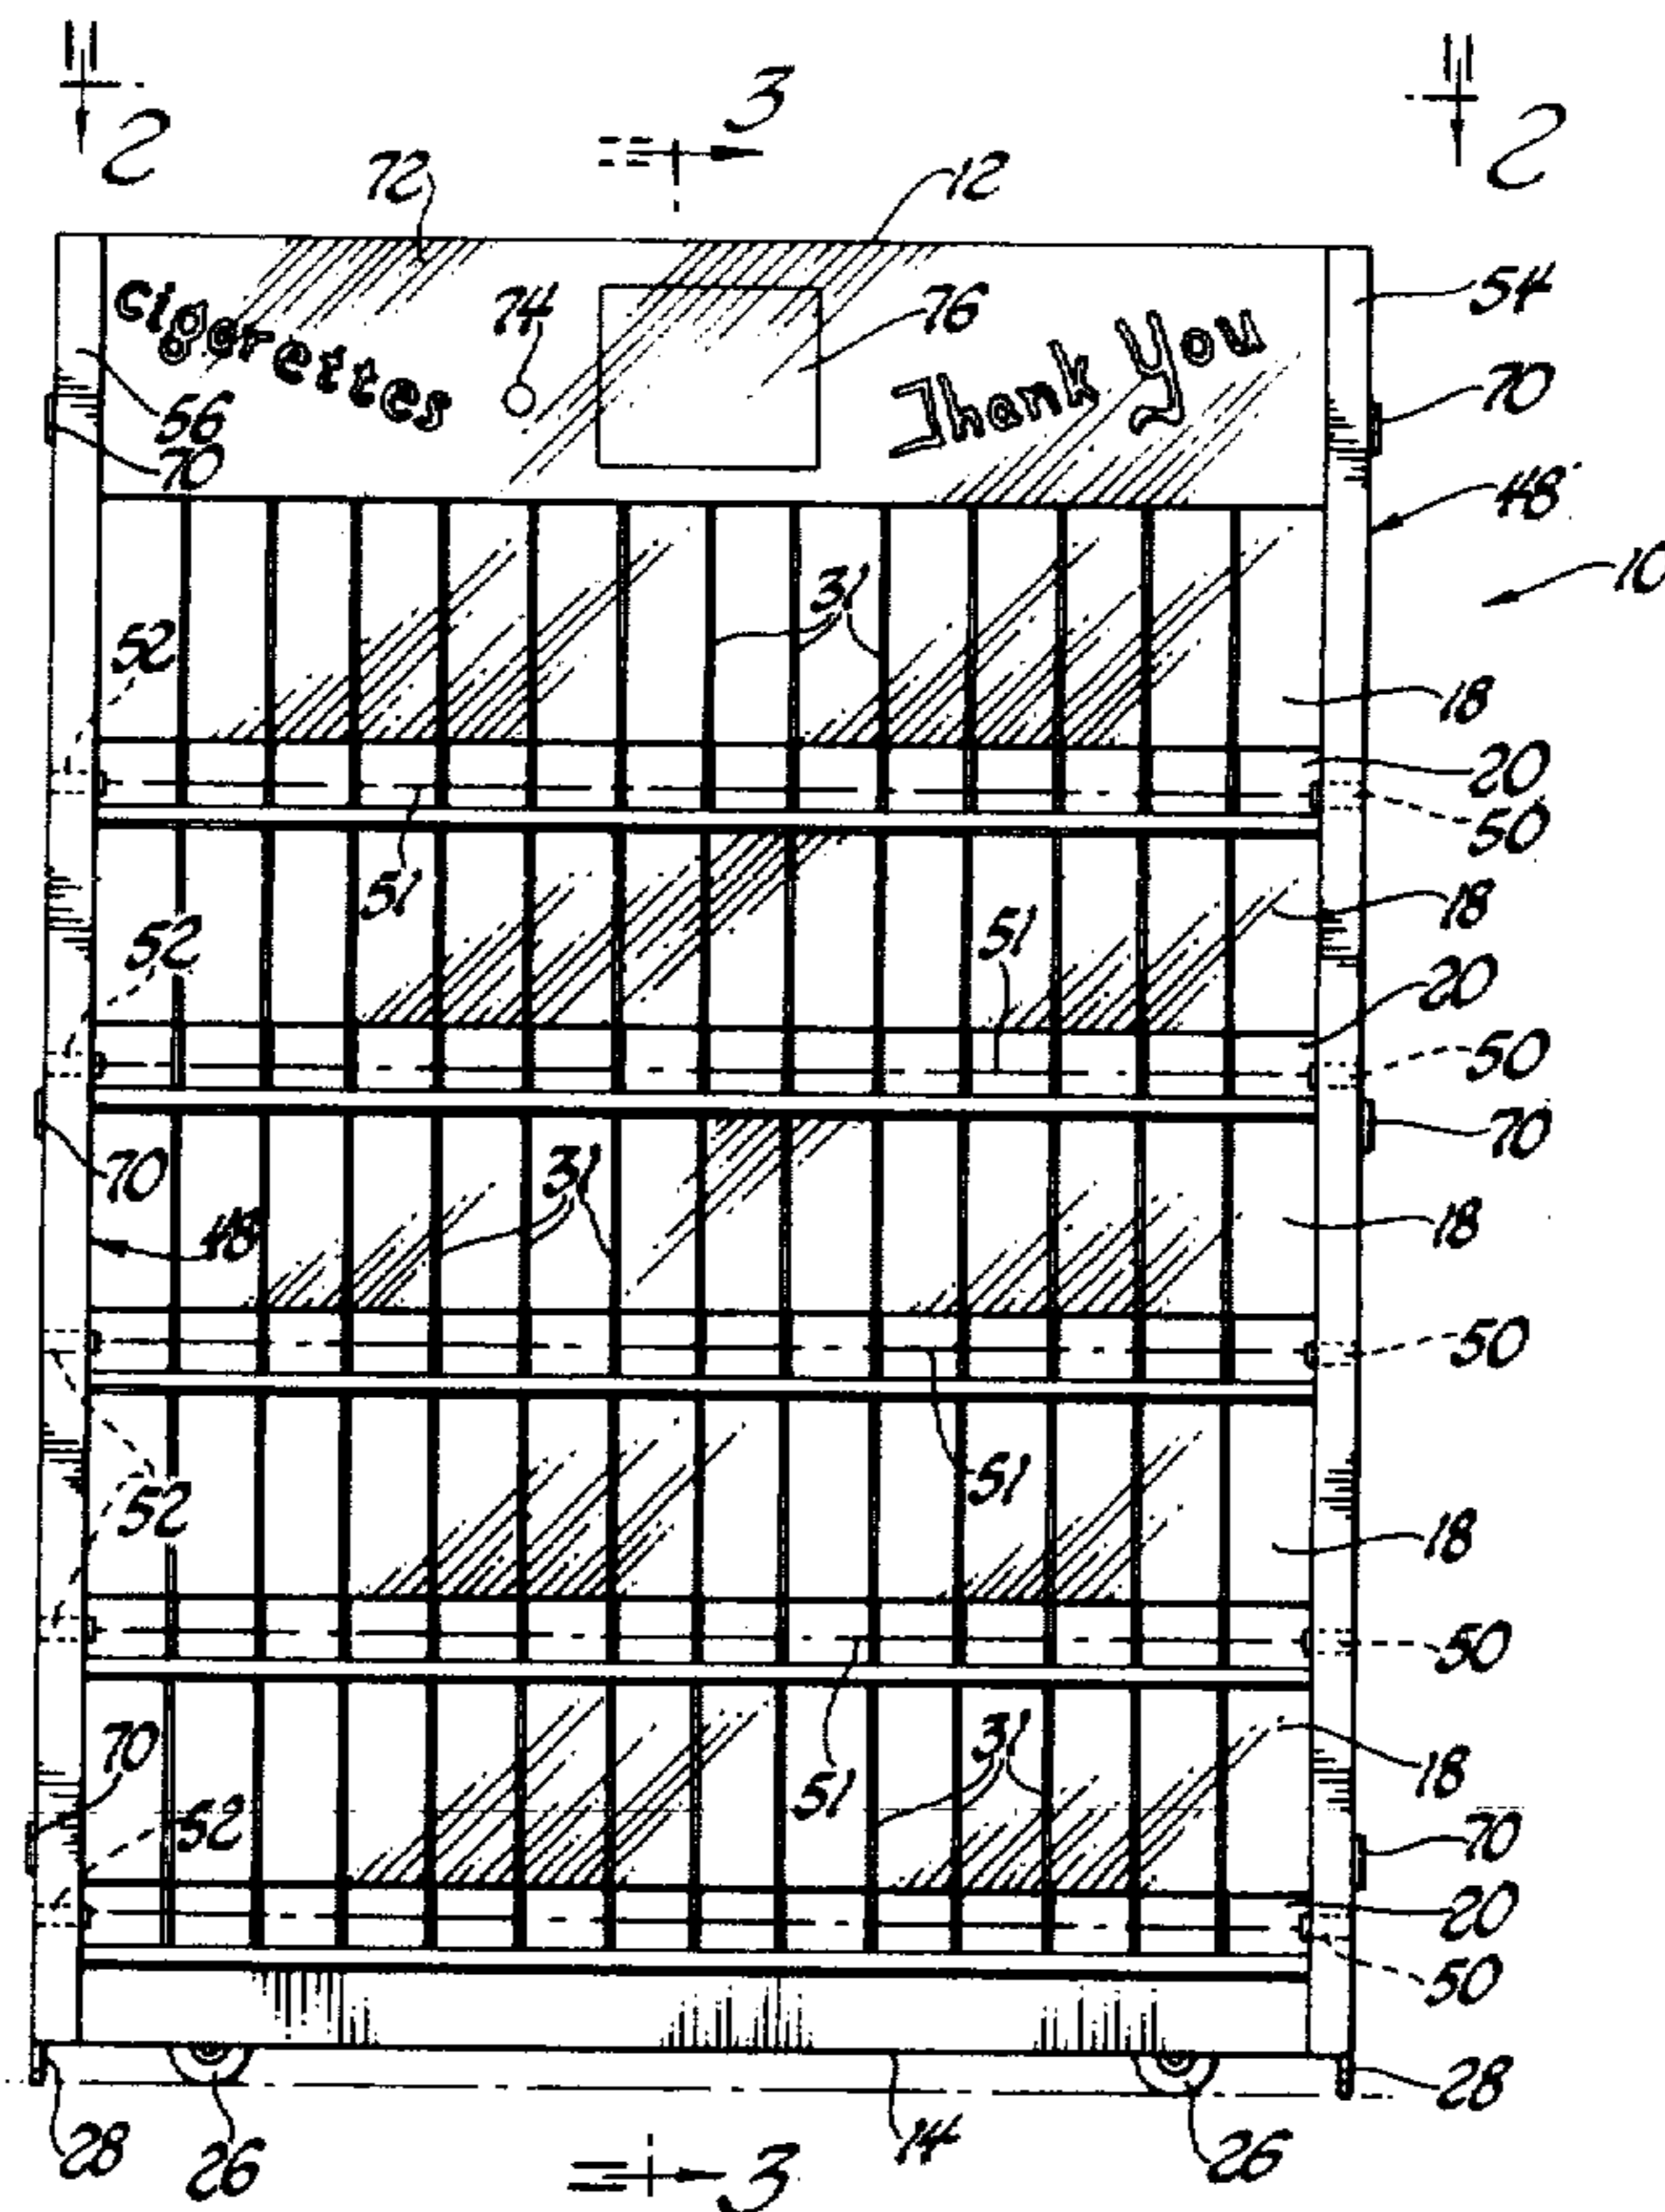 2 2
3
72 12
54
cigerettes 74 76 Thank You
56 70
70
48
10
31
52
18
20
50
51
18
52 51
20
50
70 70
31
48 18
50
51
52
18
50
70 31
51 18
52 70
20
50
28 26 14 26 28
3